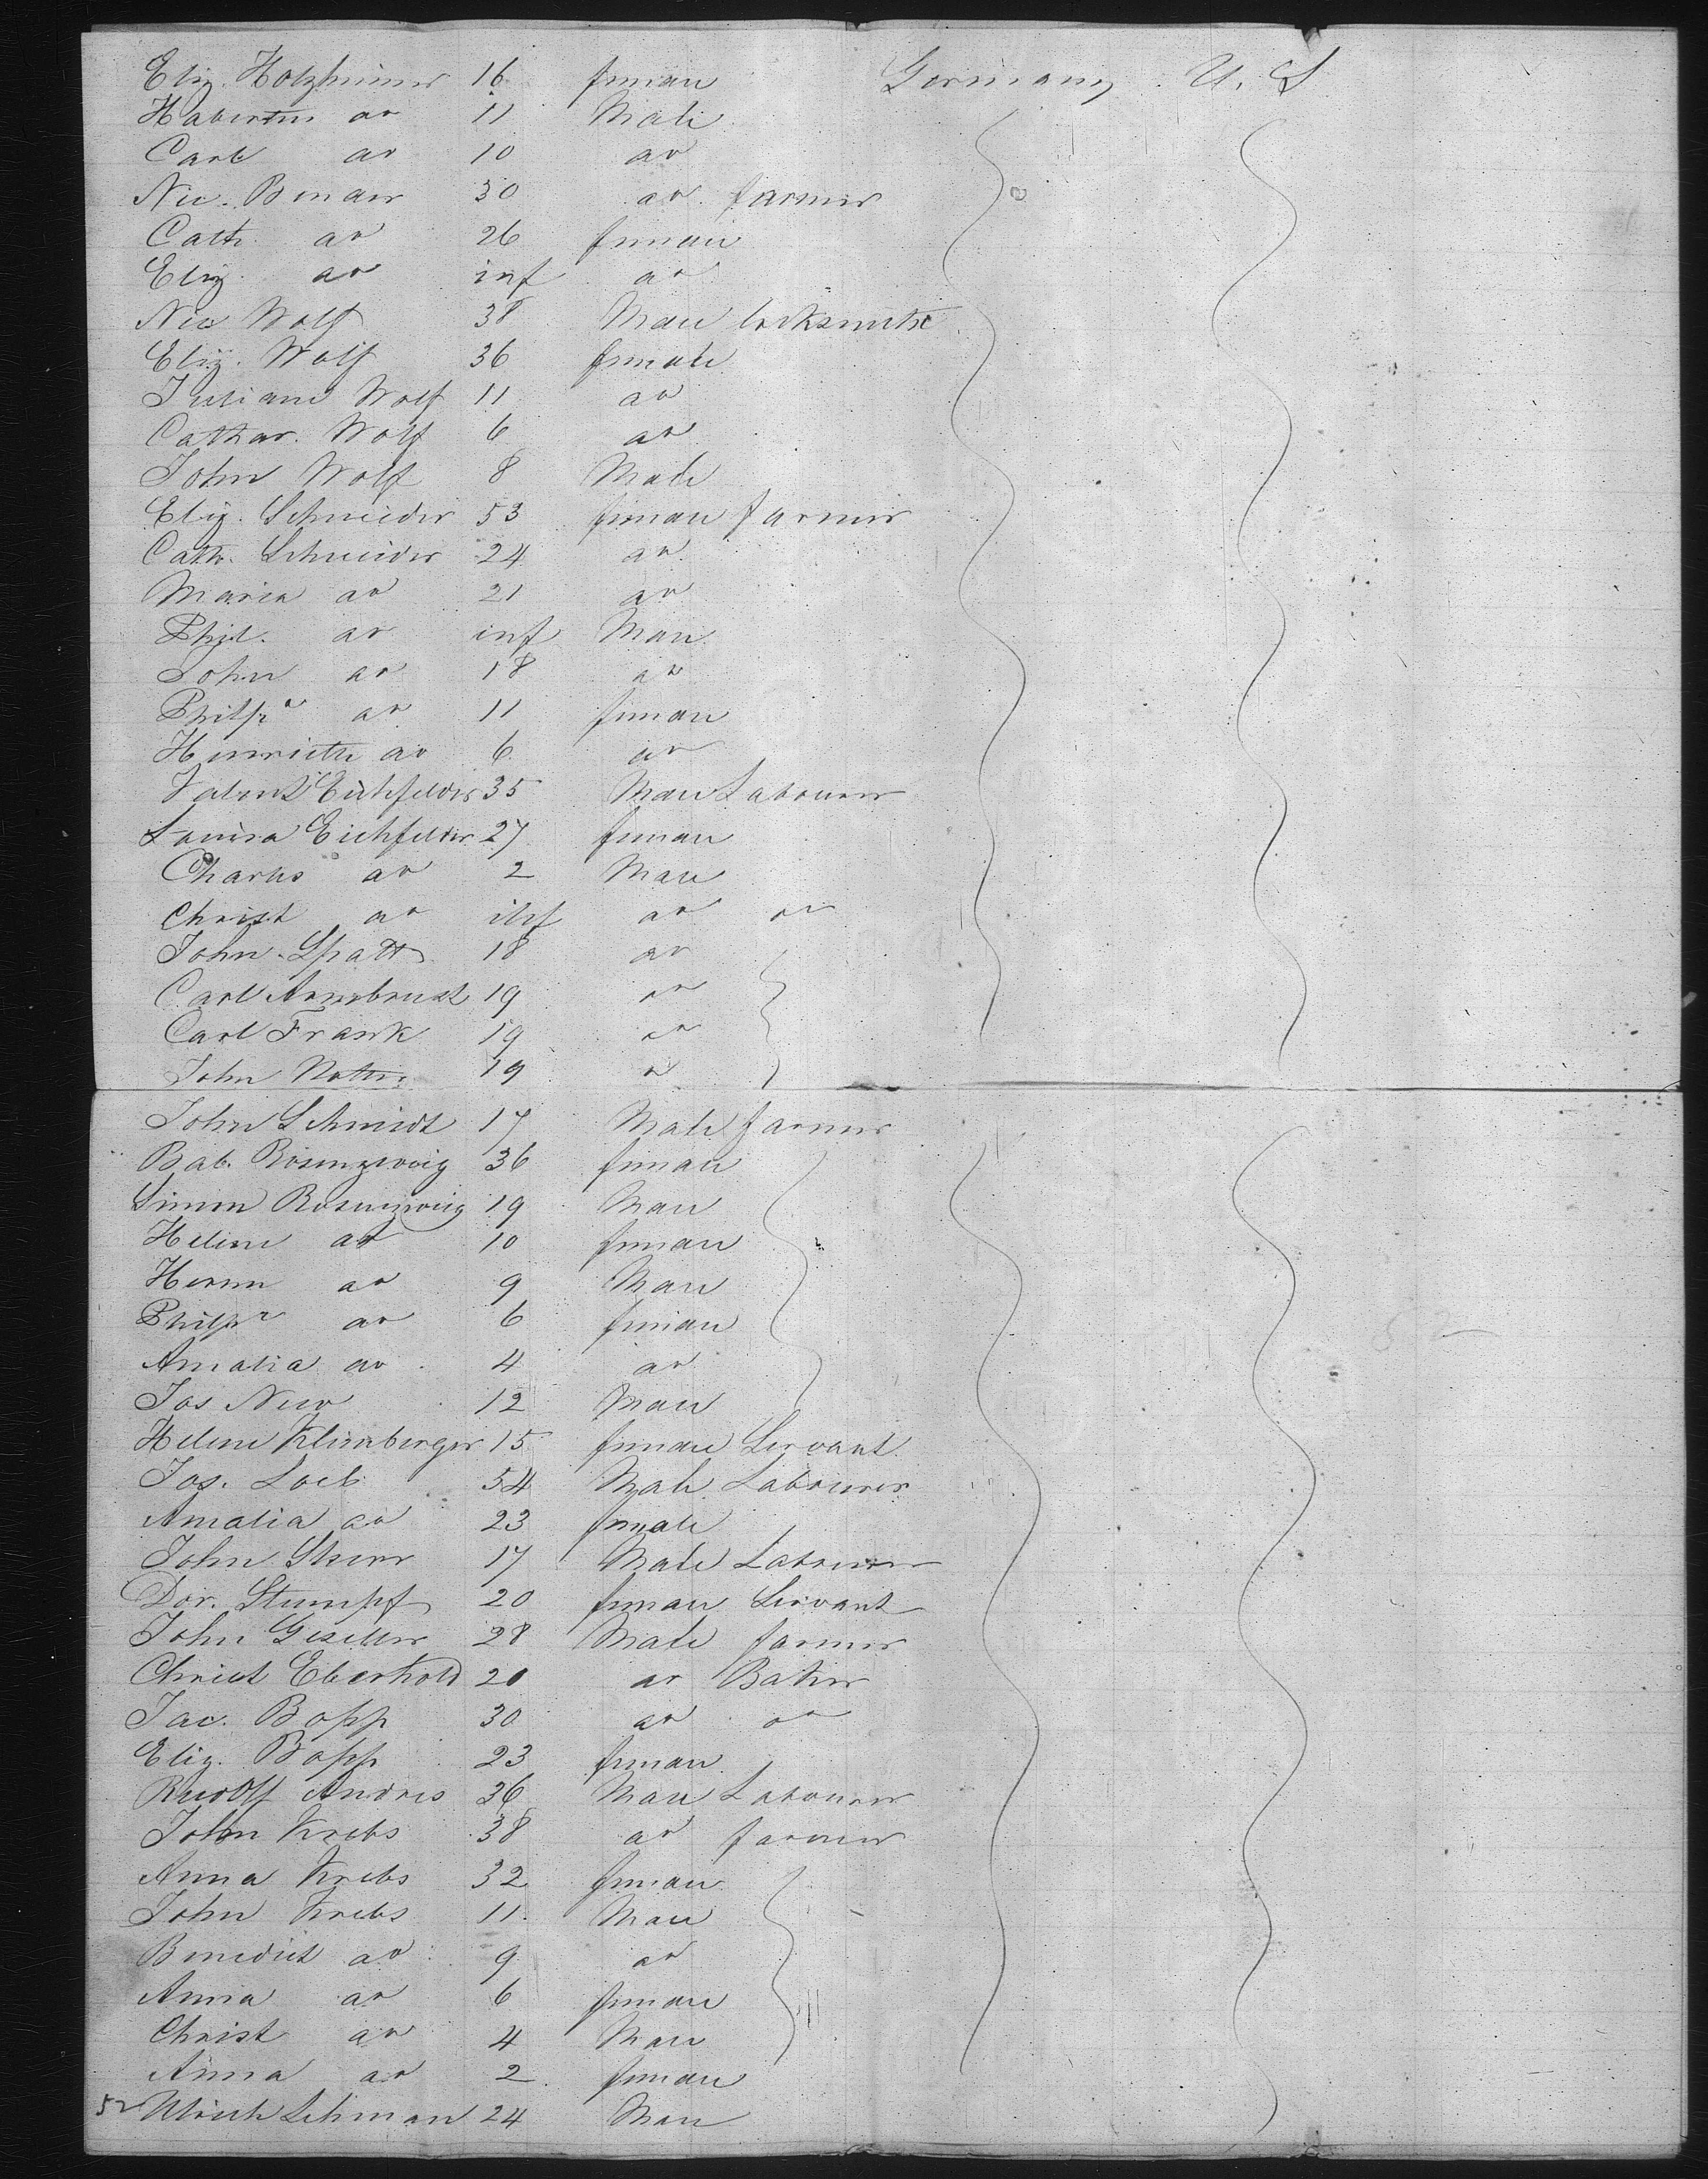 Eliz. Holzheimer 16 female Germany U. S
Habertus do 11 Male
Carl do 10 do
Nic. Bender 30 do farmer
Cath. do 26 female
Eliz. do inf do
Nic Wolf 38 Male locksmith
Eliz. Wolf 36 female
Juliane Wolf 11 do
Cathar. Wolf 6 do
John Wolf 8 Male
Eliz. Schneider 53 female farmer
Cath. Schneider 24 do
Maria do 21 do
Phil. do inf Male
John do 18 do
Philpa do 11 female
Henriette do 6 do
Valent Eichfelder 35 Male Labourer
Louisa Eichfelder 27 female
Charles do 2 Male
Christ do inf do do
John Spatt 18 do
Carl Armbrust 19 do
Carl Frank 19 do
John 19 do
John Schmidt 17 Male farmer
Bab. Rosenzweig 36 female
Simon Rosenzweig 19 Male
Helene do 10 female
Herm do 9 Male
Philpa do 6 female
Amalia do 4 do
Jos New 12 Male
Helene Klimberger 15 female Servant
Jos. Loeb 54 Male Labourer
Amalia do 23 female
John 17 Male Labourer
Dor. Stumpf 20 female Servant
John 28 Male farmer
Christ Eberhold 20 do Baker
Jac. Bopp 30 do do
Eliz. Bopp 23 female
Rudolf Andres 36 Male Labourer
John Krebs 38 do farmer
Anna Krebs 32 female
John Krebs 11 Male
Benedict do 9 do
Anna do 6 female
Christ do 4 Male
Anna do 2 female
52 Ulrich Lehman 24 Male